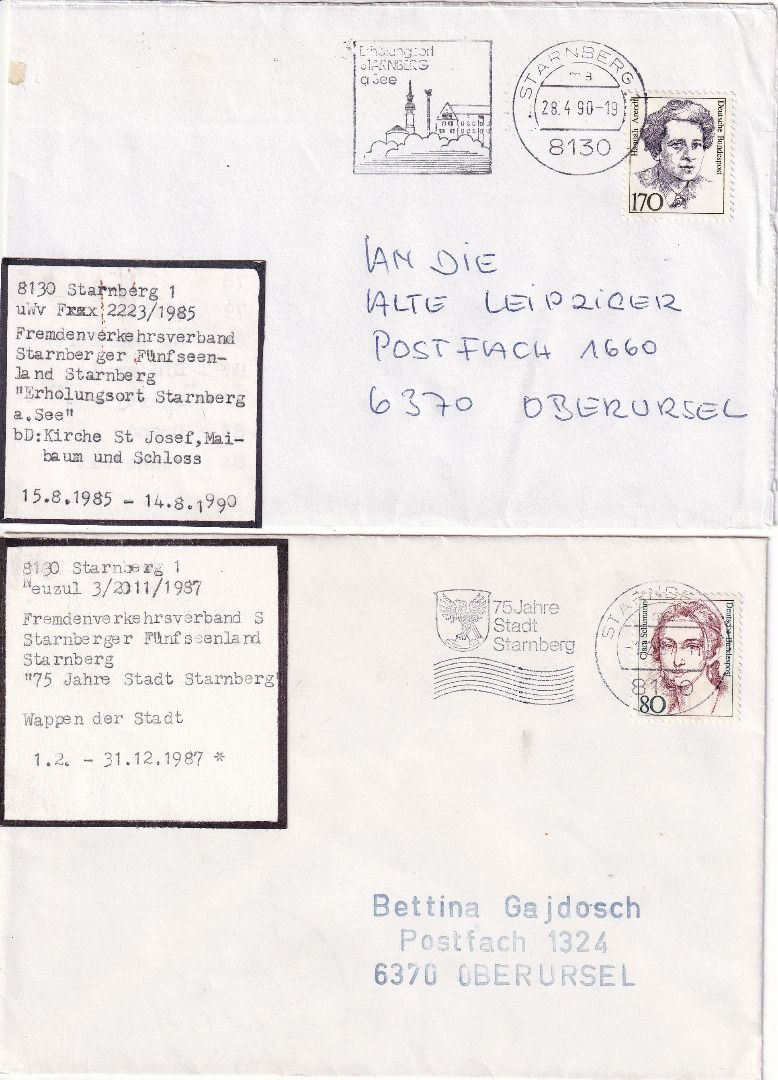 Erholungsort
STARNBERG
a See
STARNBERG
ma
28.4.90-19
8130
Hannah Arendt
Deutsche Bundespost
170
AN DIE
ALTE LEIPZIGER
POSTFACH 1660
6370 OBERURSEL
8130 Starnberg 1
uWv 2223/1985
Fremdenverkehrsverband
Starnberger Fünfseen-
land Starnberg
"Erholungsort Starnberg
a.See"
bD:Kirche St Josef,Mai-
baum und Schloss
15.8.1985 - 14.8.1990
8130 Starnberg 1
Neuzul 3/2011/1987
Fremdenverkehrsverband S
Starnberger Fünfseenland
Starnberg
"75 Jahre Stadt Starnberg"
Wappen der Stadt
1.2. - 31.12.1987 *
75 Jahre
Stadt
Starnberg
8130
Clara Schumann
Deutsche Bundespost
80
Bettina Gajdosch
Postfach 1324
6370 OBERURSEL